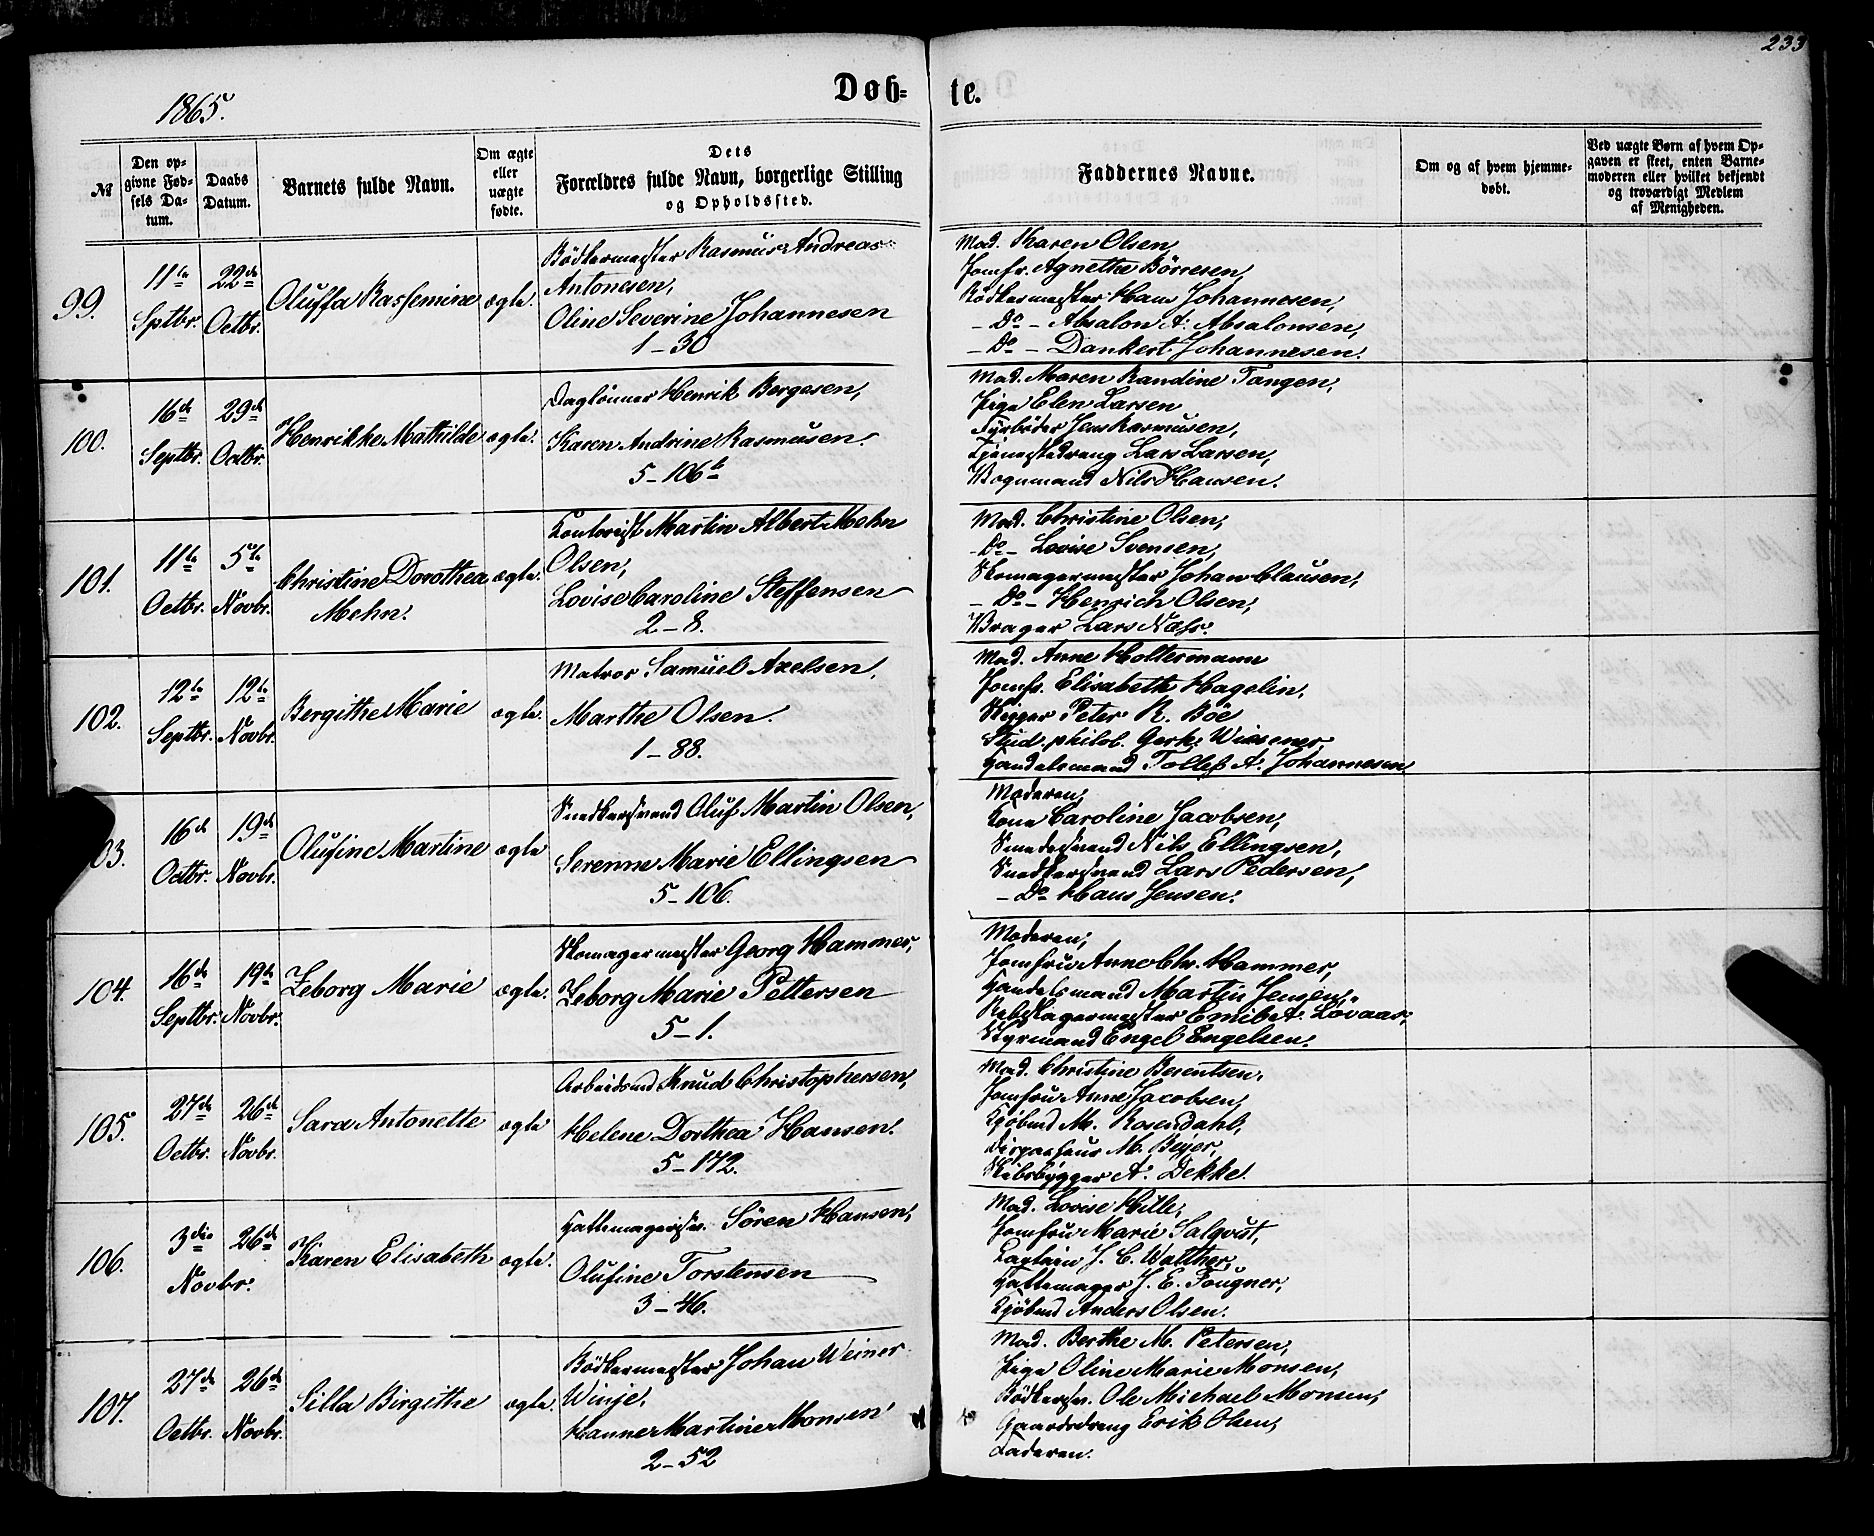 233
1865.
Døb-
te.
№
Den op-
givne Fød-
sels Da-
tum.
Daabs
Datum.
Barnets fulde Navn.
Om ægte
eller
uægte
fødte.
Dets
Forældres fulde Navn, borgerlige Stilling
og Opholdssted.
Faddernes Navne.
Om og af hvem hjemme-
døbt.
Ved uægte Børn af hvem Op-
gaven er skeet, enten Barne-
moderen eller hvilket bekjendt
og troværdigt Medlem
af Menigheden.
99.
11te
Sptbr.
22de
Octbr.
Oluffa Rassemine
ægte.
Bödkermester Rasmus Andreas
Antonesen,
Oline Severine Johannesen
1-30
Mad. Karen Olsen,
Jomfr. Agnethe Börresen,
Bödkermester Hans Johannesen,
- Do - Absalon A. Absalonsen,
- Do - Dankert Johannesen.
100.
16de
Septbr.
29de
Octbr.
Henrikke Mathilde
ægte.
Daglönner Henrik Bergesen,
Karen Andrine Rasmusen.
5-106b
Mad. Maren Randine Tangen,
Pige Elen Larsen
Fyrböder Jens Rasmusen,
Tjenestedreng Lars Larsen,
Vognmand Nils Hansen.
101.
11te
Octbr.
5te
Novbr.
Christine Dorothea
Mehn.
ægte.
Contorist Martin Albert Mehn
Olsen,
Lovise Caroline Steffensen
2-8.
Mad. Christine Olsen,
- Do - Lovise Svensen,
Skomagermester Johan Clausen,
- Do - Henrich Olsen,
Vrager Lars Næss.
102.
12te
Septbr.
12te
Novbr.
Bergithe Marie
ægte.
Matros Samuel Axelsen,
Marthe Olsen.
1-88.
Mad. Anne Holtermann
Jomfr. Elisabeth Hagelin,
Skipper Peter R. Böe
Stud. philol. Gerh. Wiesener
Handelsmand Tollef A. Johannesen
03.
16de
Octbr.
19de
Novbr.
Olufine Martine
ægte
Snedkersvend Oluf Martin Olsen,
Serenne Marie Ellingsen
5-106.
Moderen,
Kone Caroline Jacobsen,
Smedesvend Nils Ellingsen,
Snedkersvend Lars Pedersen,
- Do Hans Jensen.
104.
16de
Septbr.
19de
Novbr.
Zeborg Marie
ægte.
Skomagermester Georg Hammer,
Zeborg Marie Pettersen
5-1.
Moderen,
Jomfru Anne Chr. Hammer,
Handelsmand Martin Jensen,
Rebslagermester Emil A. Lövaas,
Styrmand Engel Engelsen.
105.
27de
Octbr.
26de
Novbr.
Sara Antonette
ægte
Arbeidsmd Knud Christophersen,
Helene Dorthea Hansen.
5-172.
Mad. Christine Berentsen,
Jomfru Anne Jacobsen,
Kjöbmd M. Rosendahl,
Dispacheur M. Beyer,
Skibsbygger A. Dekke.
106.
3die
Novbr.
26de
Karen Elisabeth
ægte.
Hattemagersv. Sören Hansen,
Olufine Torstensen
3-46.
Mad. Lovise Hille,
Jomfru Marie Salqvist,
Captein J. C. Walther,
Hattemager J. E. Fougner,
Kjöbmd Anders Olsen.
107.
27de
Octbr.
26de
Novbr.
Silla Birgithe
ægte.
Bödkermester Johan Weiner
Winje,
Hanne Martine Monsen
2-52
Mad. Berthe M. Petersen,
Pige Oline Marie Monsen,
Bödkersv. Ole Michael Monsen,
Gaardsdreng Erik Olsen,
Faderen.